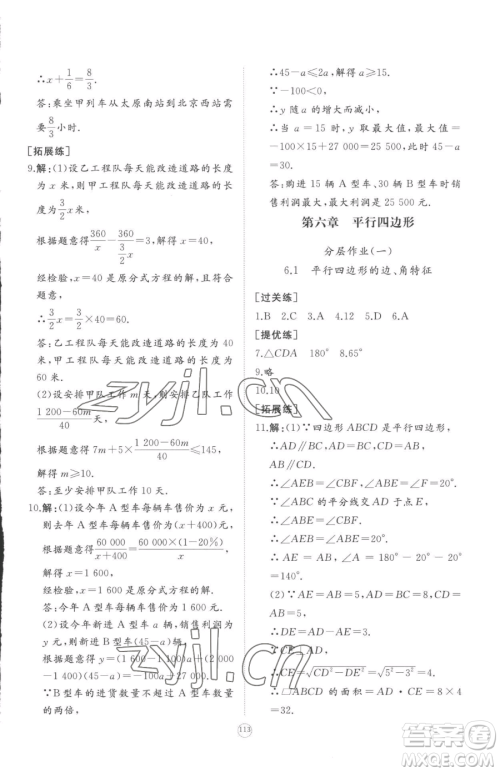 ∴x+1/6=8/3.
答:乘坐甲列车从太原南站到北京西站需
要8/3小时.
[拓展练]
9.解:(1)设乙工程队每天能改造道路的长度
为x米,则甲工程队每天能改造道路的长度
为3/2x米,
根据题意得360/x-360/(3/2x)=3,解得x=40,
经检验,x=40是原分式方程的解,
∴3/2x=3/2×40=60.
答:乙工程队每天能改造道路的长度为
40米,甲工程队每天能改造道路的长度为
60米.
(2)设安排甲队工作m天,则安排乙队工作
(1 200-60m)/40天,
根据题意得7m+5×(1 200-60m)/40≤145,
解得m≥10.
答:至少安排甲队工作10天.
10.解:(1)设今年A型车每辆车售价为x元,则
去年A型车每辆车售价为(x+400)元,
根据题意得60 000/(x+400)=60 000×(1-20%)/x,
解得x=1 600,
经检验,x=1 600是原方程的解.
答:今年A型车每辆车售价为1 600元.
(2)设今年新进A型车a辆,销售利润为
y元,则新进B型车(45-a)辆,
根据题意得y=(1 600-1 100)a+(2 000
-1 400)(45-a)=-100a+27 000.
∵B型车的进货数量不超过A型车数量
的两倍,
∴45-a≤2a,解得a≥15.
∵-100<0,
∴y随a的增大而减小,
∴当a=15时,y取最大值,最大值=
-100×15+27 000=25 500.
答:购进15辆A型车、30辆B型车时销
售利润最大,最大利润是25 500元.
第六章 平行四边形
分层作业(一)
6.1 平行四边形的边、角特征
[过关练]
1.B 2.C 3.A 4.12 5.D 6.A
[提优练]
7.△CDA 180° 8.65°
9.略
10.10
[拓展练]
11.解:(1)∵四边形ABCD是平行四边形,
∴AD∥BC,AD=BC,
AB∥CD,
∴∠AEB=∠EBC,∠ABE=∠F=20°.
∵∠ABE=∠EBC,
∴∠AEB=∠ABE=20°,
∴AE=AB,∠A=180°-20°-20°
=140°.
(2)∵AE=AB=5,AD=BC=8,CD=
AB=5,
∴DE=AD-AE=3.
∵CE⊥AD,
∴CE=√(CD²-DE²)=√(5²-3²)=4,
∴▱ABCD的面积=AD·CE=8×4
=32.
zyjl.cn
zyjl.cn
113
答案圈
MXQE.COM